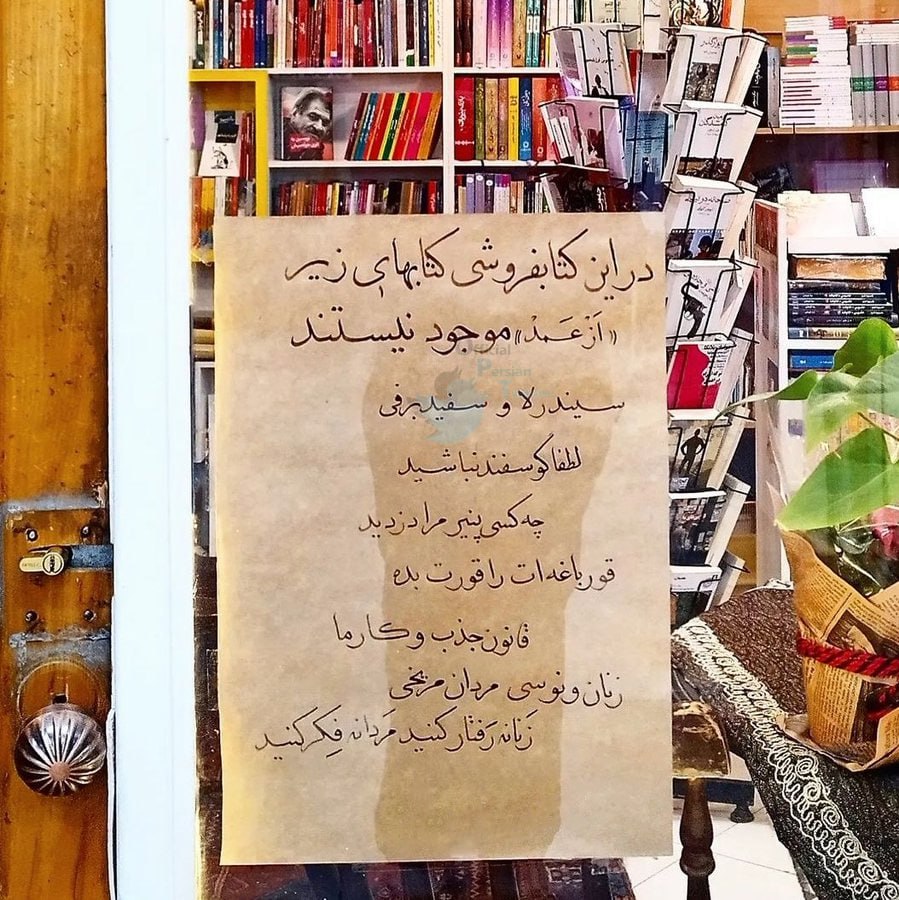 در این کتابفروشی کتابهای زیر
«اَزْ عَمَدْ» موجود نیستند
سیندرلا و سفیدبرفی
لطفا گوسفند نباشید
چه کسی پنیر مرا دزدید
قورباغه ات را قورت بده
قانون جذب و کارما
زنان ونوسی مردان مریخی
زَنانه رَفتار کنید مَردانه فِکر کنید
Official
Persian